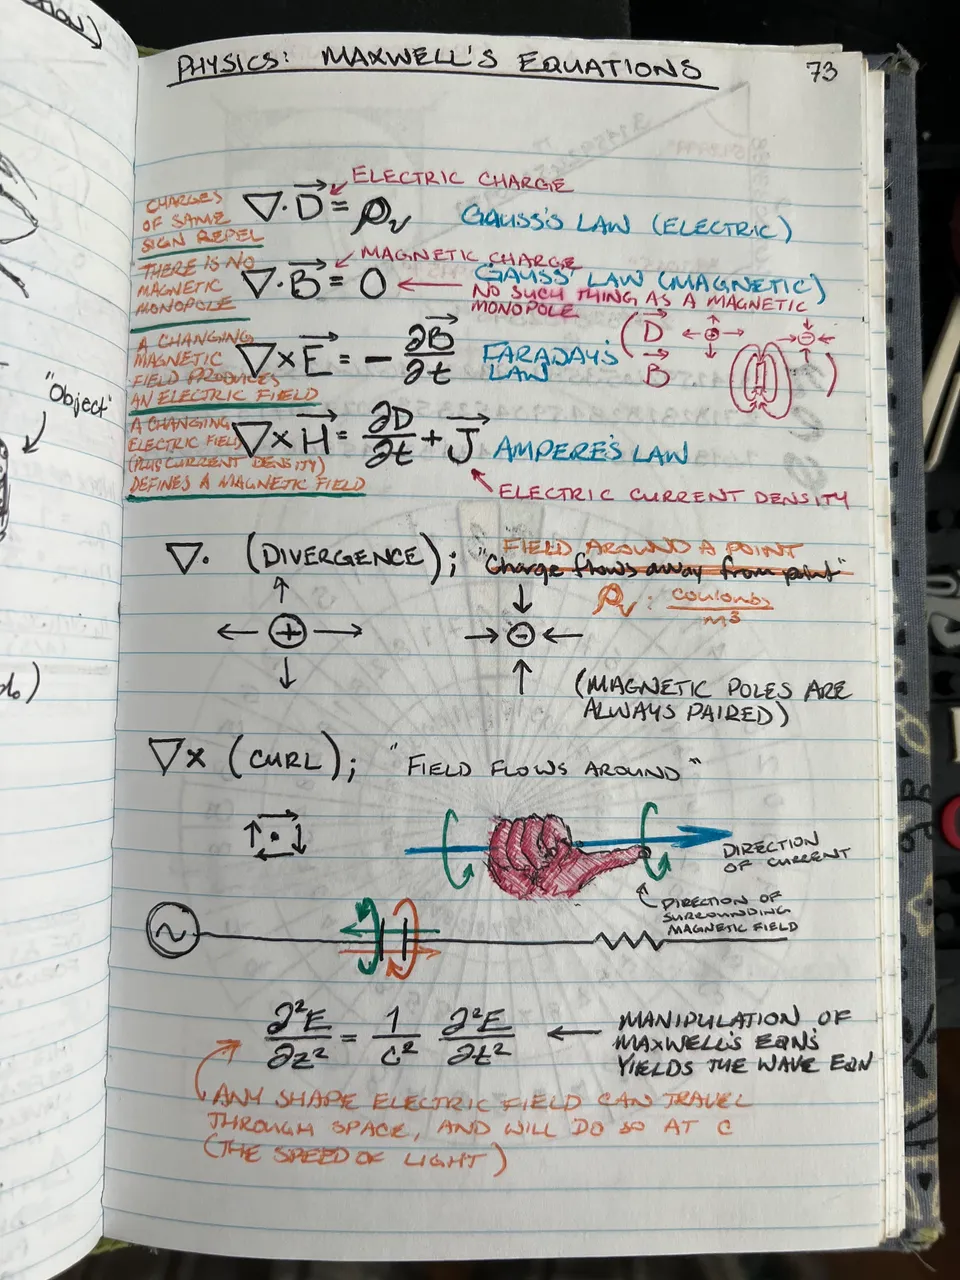 PHYSICS: MAXWELL'S EQUATIONS
73
ELECTRIC CHARGE
CHARGES
OF SAME
SIGN REPEL
∇·D⃗ = ρᵥ
GAUSS'S LAW (ELECTRIC)
MAGNETIC CHARGE
THERE IS NO
MAGNETIC
MONOPOLE
∇·B⃗ = 0
GAUSS' LAW (MAGNETIC)
NO SUCH THING AS A MAGNETIC
MONOPOLE
A CHANGING
MAGNETIC
FIELD PRODUCES
AN ELECTRIC FIELD
∇×E⃗ = - ∂B⃗/∂t
FARADAY'S
LAW
(D⃗
B⃗ )
A CHANGING
ELECTRIC FIELD
(PLUS CURRENT DENSITY)
DEFINES A MAGNETIC FIELD
∇×H⃗ = ∂D/∂t + J⃗
AMPERE'S LAW
ELECTRIC CURRENT DENSITY
"Object"
FIELD AROUND A POINT
∇· (DIVERGENCE); "Charge flows away from point"
ρᵥ: coulombs/m³
+
-
(MAGNETIC POLES ARE
ALWAYS PAIRED)
∇× (CURL); "FIELD FLOWS AROUND"
DIRECTION
OF CURRENT
DIRECTION OF
SURROUNDING
MAGNETIC FIELD
∂²E/∂z² = 1/c² ∂²E/∂t²
MANIPULATION OF
MAXWELL'S EQNS
YIELDS THE WAVE EQN
ANY SHAPE ELECTRIC FIELD CAN TRAVEL
THROUGH SPACE, AND WILL DO SO AT C
(THE SPEED OF LIGHT)